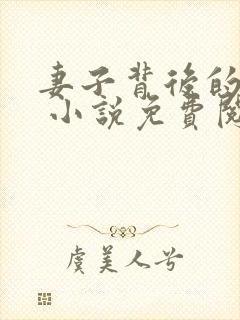 妻子背後的
小說免費閱
虞美人兮